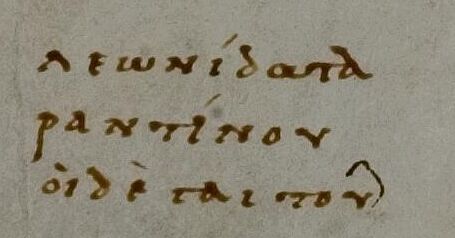 λεωνίδα τα
ραντίνου
οἱ δὲ γαιτουλ